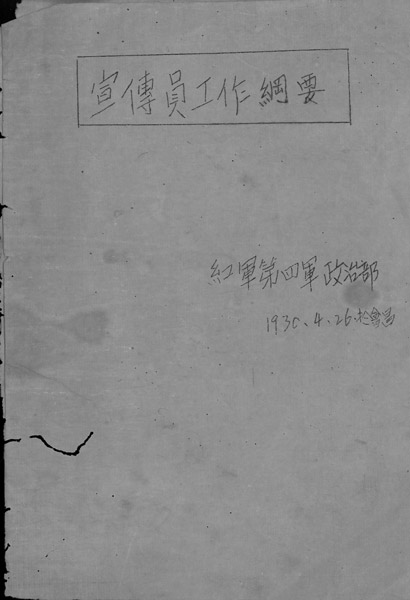 宣傳員工作綱要
紅軍第四軍政治部
1930.4.26.於會昌